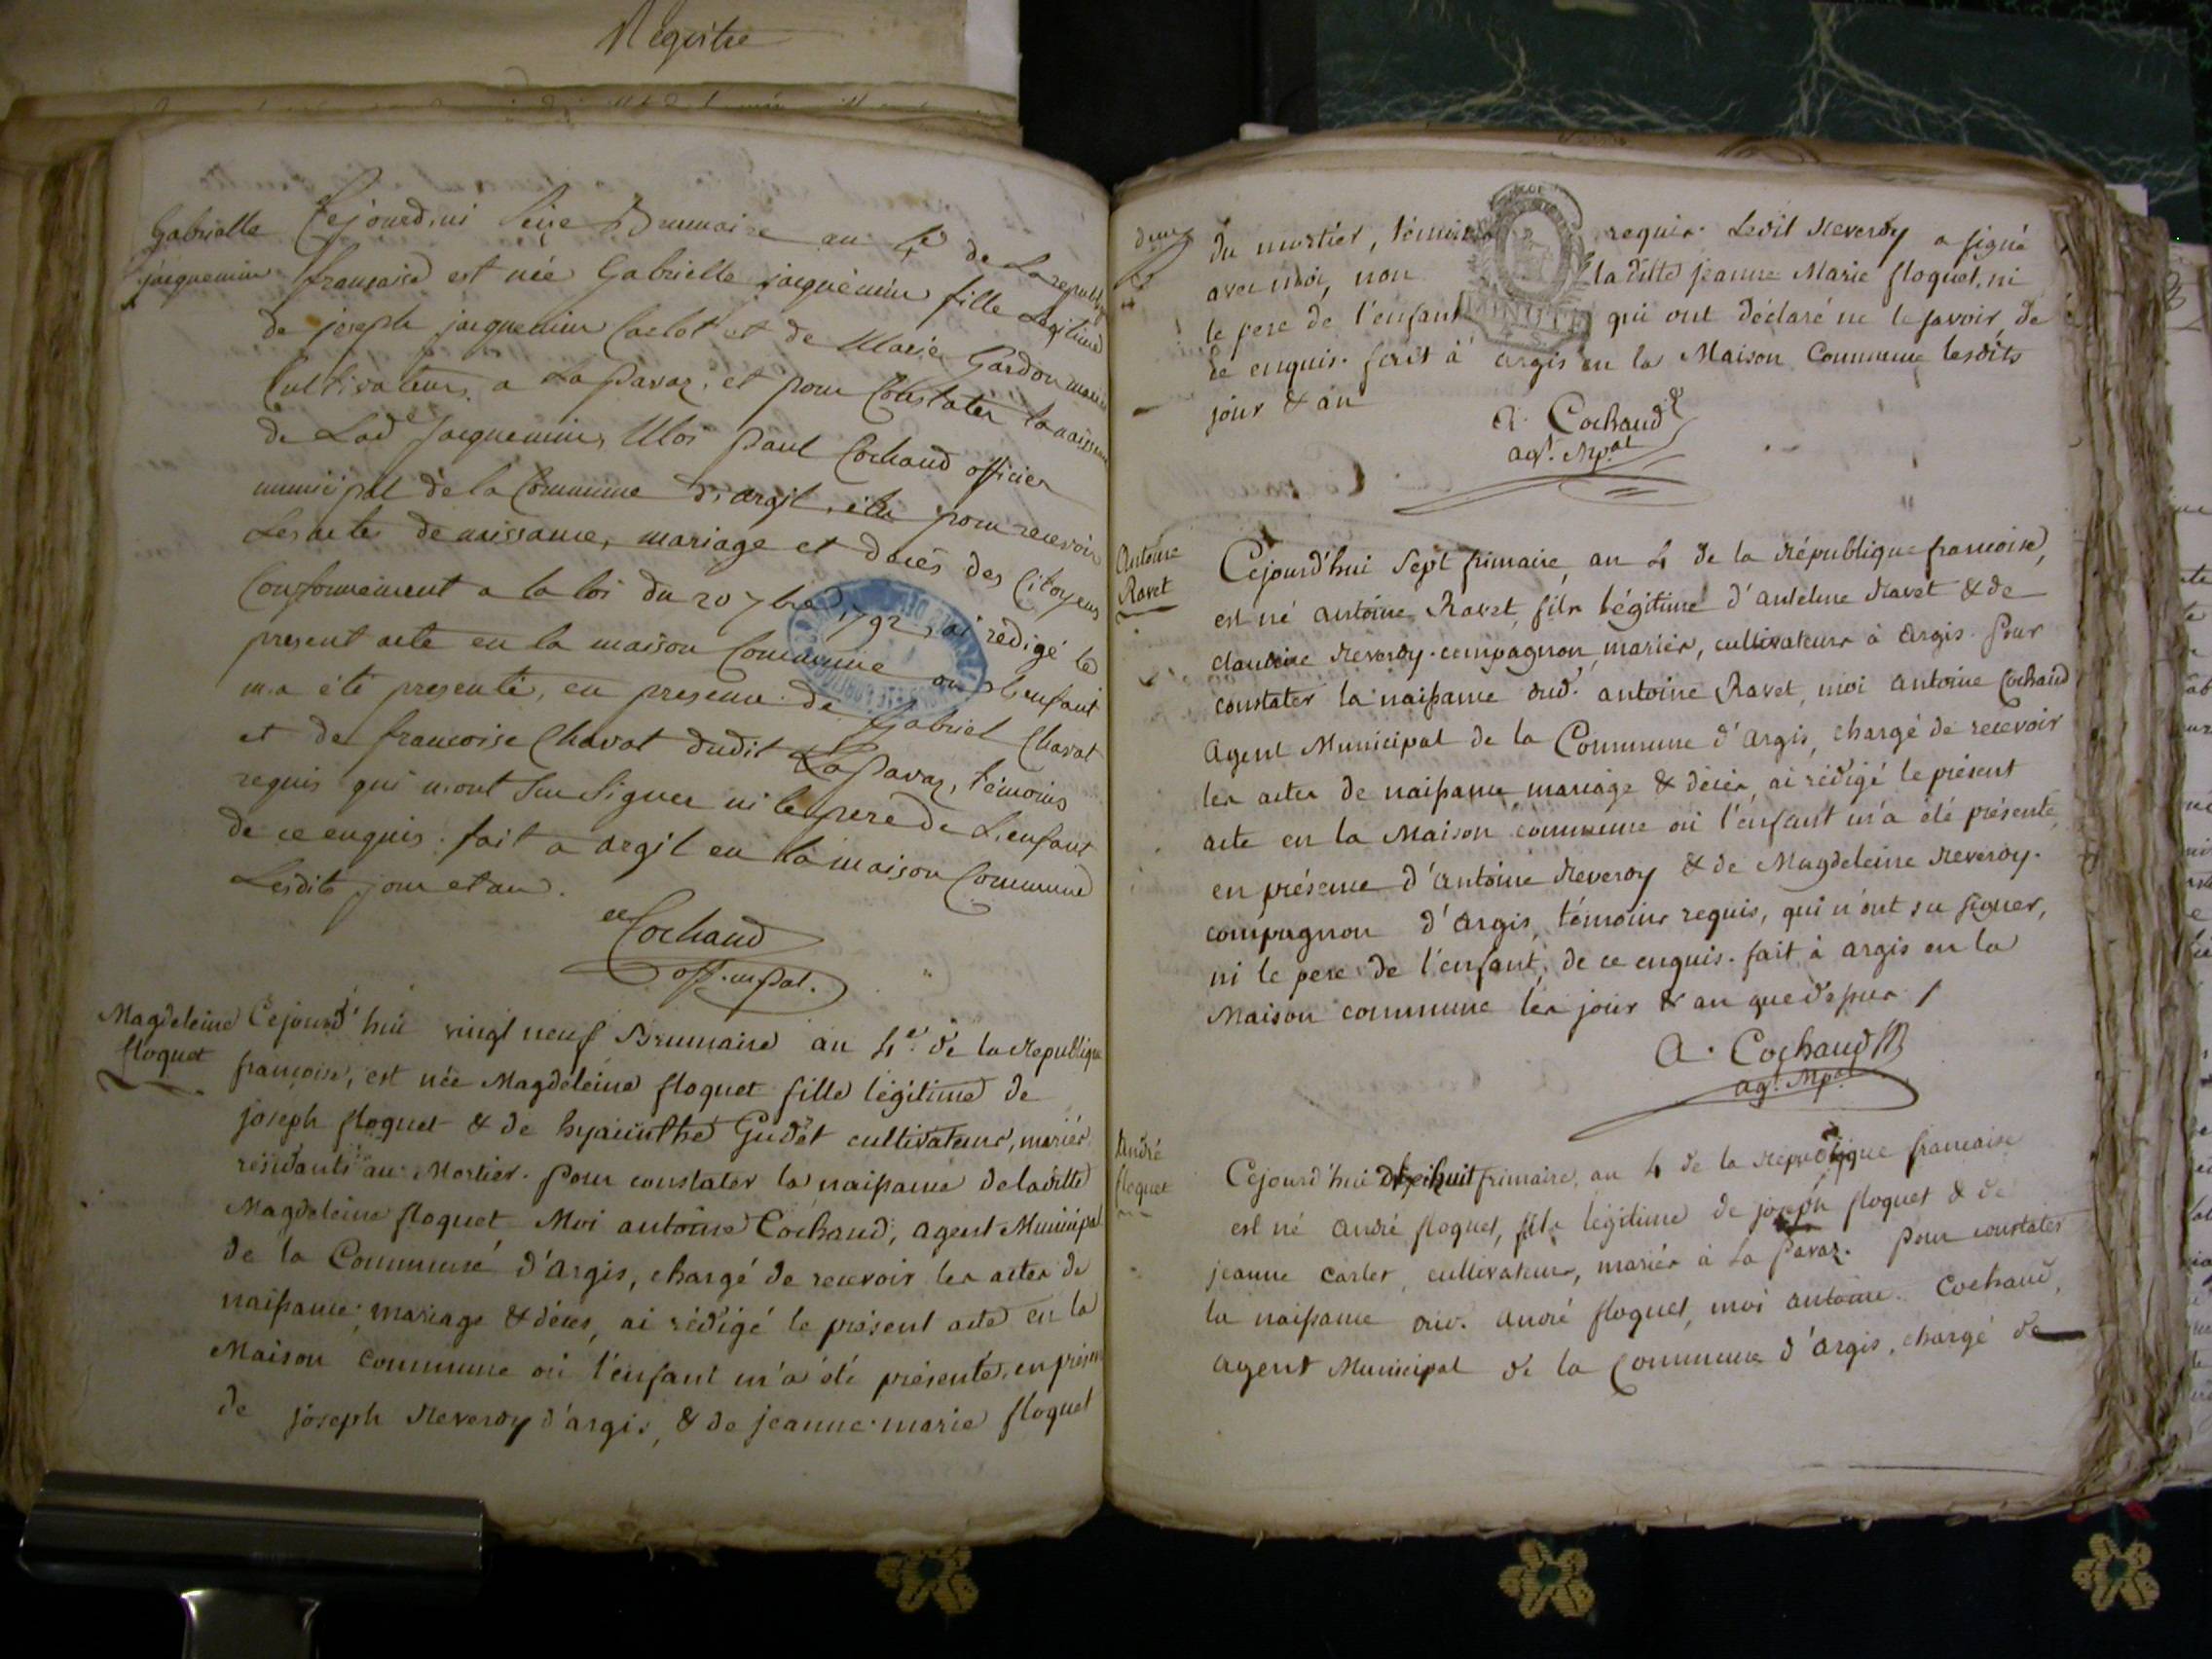 Registre
Gabrielle
jacquemin
Cejourd'ui Seize Brumaire an 4e de La republi
francaise est née Gabrielle jacquemin fille Legitime
de joseph jacquemin Carlot et de Marie Gardon mariés
Cultivateurs a La Pavaz, et pour Constater la naissan
de Lade jacquemin, Moi Paul Cochaud officier
municipal de la Commune d'argil, élu pour recevoir
Les actes de naissance, mariage et decés des Citoyens
Conformement a la loi du 20 7bre 1792, ai redigé le
present acte en la maison Commune ou L'enfant
m'a été presenté, en presence de Gabriel Chavat
et de francoise Chavat dudit La Pavaz, témoins
requis qui n'ont Su Signer ni le pere de L'enfant
de ce enquis. fait a argil en la maison Commune
Lesdits jour et an.
Cochaud
off. mpal.
Magdeleine
floquet
Cejourd'hui vingt neuf Brumaire an 4e. de la Republique
françoise, est née Magdeleine floquet fille légitime de
joseph floquet & de hyacinthe Gudet cultivateurs, mariés
résidants au Mortier. Pour constater la naissance de laditte
Magdeleine floquet, Moi antoine Cochaud, agent Municipal
de la Commune d'argis, chargé de recevoir les actes de
naissance, mariage & décès, ai rédigé le présent acte en la
Maison commune où l'enfant m'a été présenté, en présen
de joseph Reverdy d'argis, & de jeanne-marie floquet
deux
du mortier, témoins requis. Ledit Reverdy a signé
avec moi, non la ditte jeanne Marie floquet, ni
le pere de l'enfant qui ont déclaré ne le savoir, de
ce enquis. fait à argis en la Maison Commune lesdits
jour & an
A. Cochaud
agt. Mpal
Antoine
Ravet
Cejourd'hui Sept frimaire, an 4 de la République francoise,
est né antoine Ravet, fils légitime d'antelme Ravet & de
claudine Reverdy-compagnon, mariés, cultivateurs à argis. Pour
constater la naissance dud. antoine Ravet, moi antoine Cochaud
Agent Municipal de la Commune d'argis, chargé de recevoir
les actes de naissance mariage & décès, ai rédigé le présent
acte en la Maison commune où l'enfant m'a été présenté,
en présence d'antoine Reverdy & de Magdeleine Reverdy-
compagnon d'argis, témoins requis, qui n'ont su signer,
ni le pere de l'enfant, de ce enquis. fait à argis en la
Maison commune les jour & an que dessus /
A. Cochaud
agt. Mpal
André
floquet
Cejourd'hui dixhuit frimaire, an 4 de la République francaise
est né André floquet, fils légitime de joseph floquet & de
jeanne Carlet, cultivateurs, mariés à La Pavaz. Pour constater
la naissance dud. André floquet, moi antoine Cochaud,
agent Municipal de la Commune d'argis, chargé de